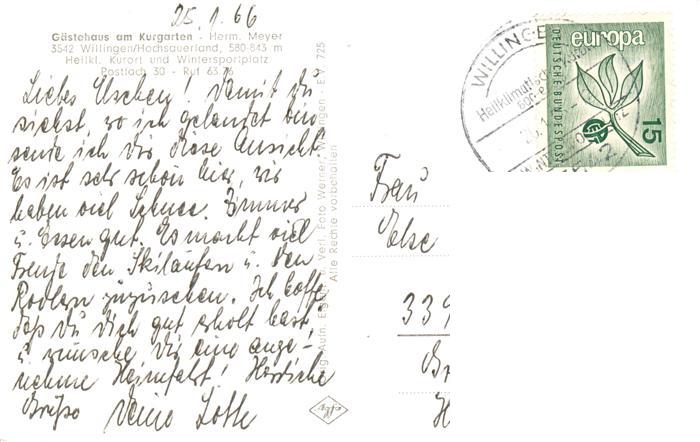 25.1.66
Gästehaus am Kurgarten - Herm. Meyer
3542 Willingen/Hochsauerland, 580-843 m
Heilkl. Kurort und Wintersportplatz
Postfach 30 - Ruf 63
Liebes Uschen! Damit du
siehst, wo ich gelandet bin
sende ich dir diese Ansicht.
Es ist sehr schön hier, wir
haben viel Schnee. Zimmer
u. Essen gut. Es macht viel
Freude den Skiläufen u. den
Rodlern zuzusehen. Ich hoffe
daß Du Dich gut erholt hast,
u. wünsche Dir eine ange-
nehme Heimfahrt! Herzliche
Grüße Deine Lotte
Orig. Aufn. Eigent. u. Verl. Foto Werner, Willingen - EV. 725
Alle Rechte vorbehalten
Frau
Else
339
WILLINGE
europa
15
DEUTSCHE BUNDESPOST
CEPT